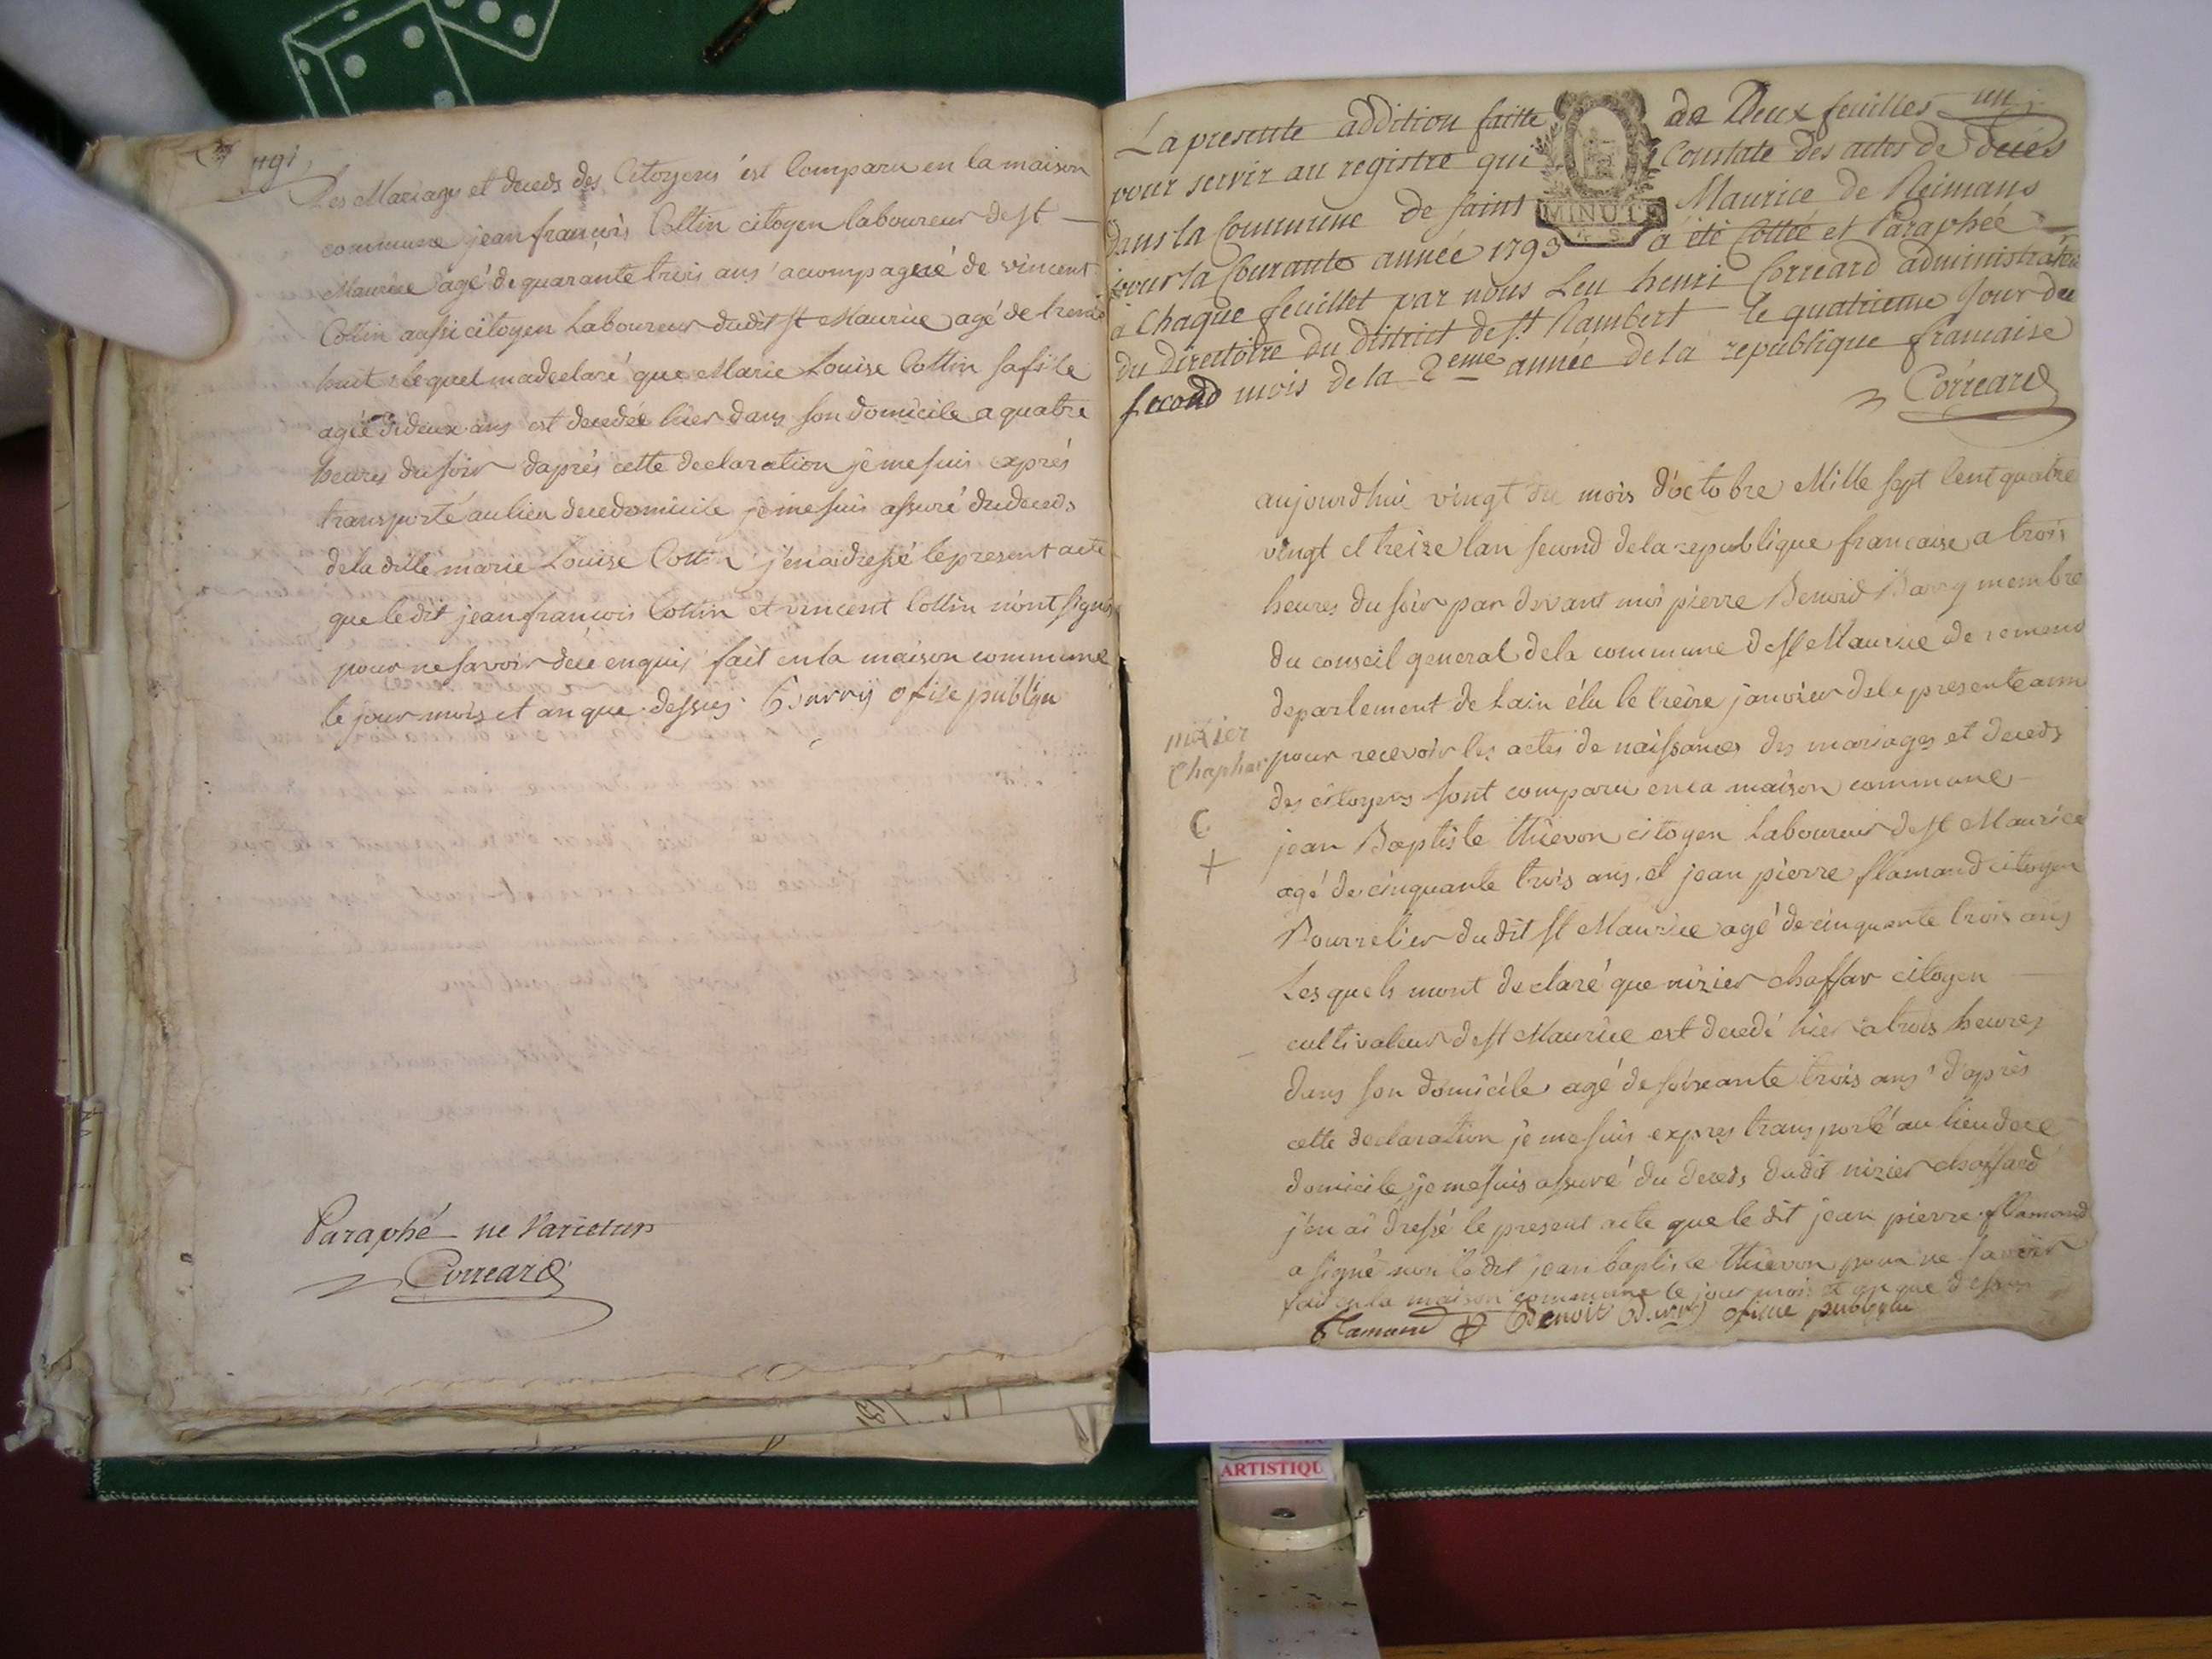 Les Mariages et deceds des Citoyens est Comparu en la maison
commune jean françois Cottin citoyen laboureur de st
Maurice agé de quarante trois ans accompagné de vincent
Cottin aussi citoyen Laboureur dudit st Maurice agé de trente
huit lequel ma declaré que Marie Louise Cottin sa file
agée de deux ans est decedée hier dans son domicile a quatre
heures du soir daprés cette declaration je me suis exprés
transporté au lieu de ce domicile je me suis assuré du deceds
de la ditte marie Louise Cottin j'en ai dressé le present acte
que le dit jean françois Cottin et vincent Cottin n'ont signé
pour ne savoir de ce enquis fait en la maison commune
le jour mois et an que dessus
ofise publiqu
Paraphé ne Varietur
Correard
La presente addition faitte de Deux feuilles un
pour servir au registre qui Constate des actes de decés
dans la Commune de saint Maurice de Reimans
pour la Courante année 1793 a été Cottée et Paraphée
a Chaque feuillet par nous Leu henri Correard administrateur
du directoire du district de st Rambert le quatrieme Jour du
second mois de la 2eme année de la republique francaise
Correard
MINUTE
aujourdhui vingt du mois d'octobre Mille sept Cent quatre
vingt et treize lan second de la republique francaise a trois
heures du soir par devant moi pierre Benoid membre
du conseil general de la commune de st Maurice de remens
departement de Lain élu le treize janvier de la presente ann
pour recevoir les actes de naissances des mariages et deceds
des citoyens sont comparu en la maison commune
jean Baptiste thievon citoyen Laboureur de st Maurice
agé de cinquante trois ans et jean pierre flamand citoyen
Bourrelier du dit st Maurice agé de cinquante trois ans
Les quels mont declaré que nizier chaffar citoyen
cultivateur de st Maurice est decedé hier a trois heures
dans son domicile agé de soixante trois ans d'aprés
cette declaration je me suis expres transporté au lieu de ce
domicile je me suis assuré du deceds dudit nizier chaffard
j'en ai dressé le present acte que le dit jean pierre flamand
a signé non le dit jean baptiste thievon pour ne savoir
fait en la maison commune le jour mois et an que dessus
flamand Benoit ofisie publique
nizier
Chaphar
C
+
ARTISTIQU